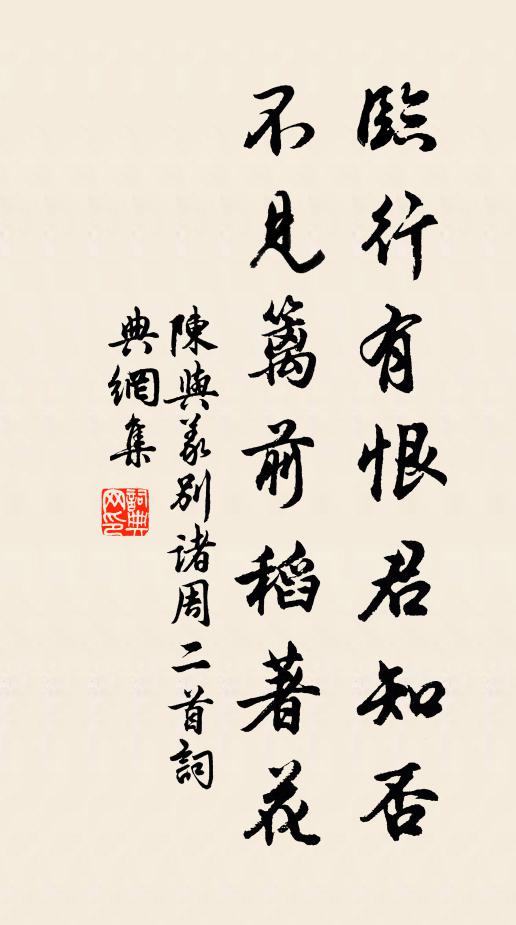 臨行有恨君知否
不見籬前稻著花
陳與義別諸周二首詞
典網集
詞典网印